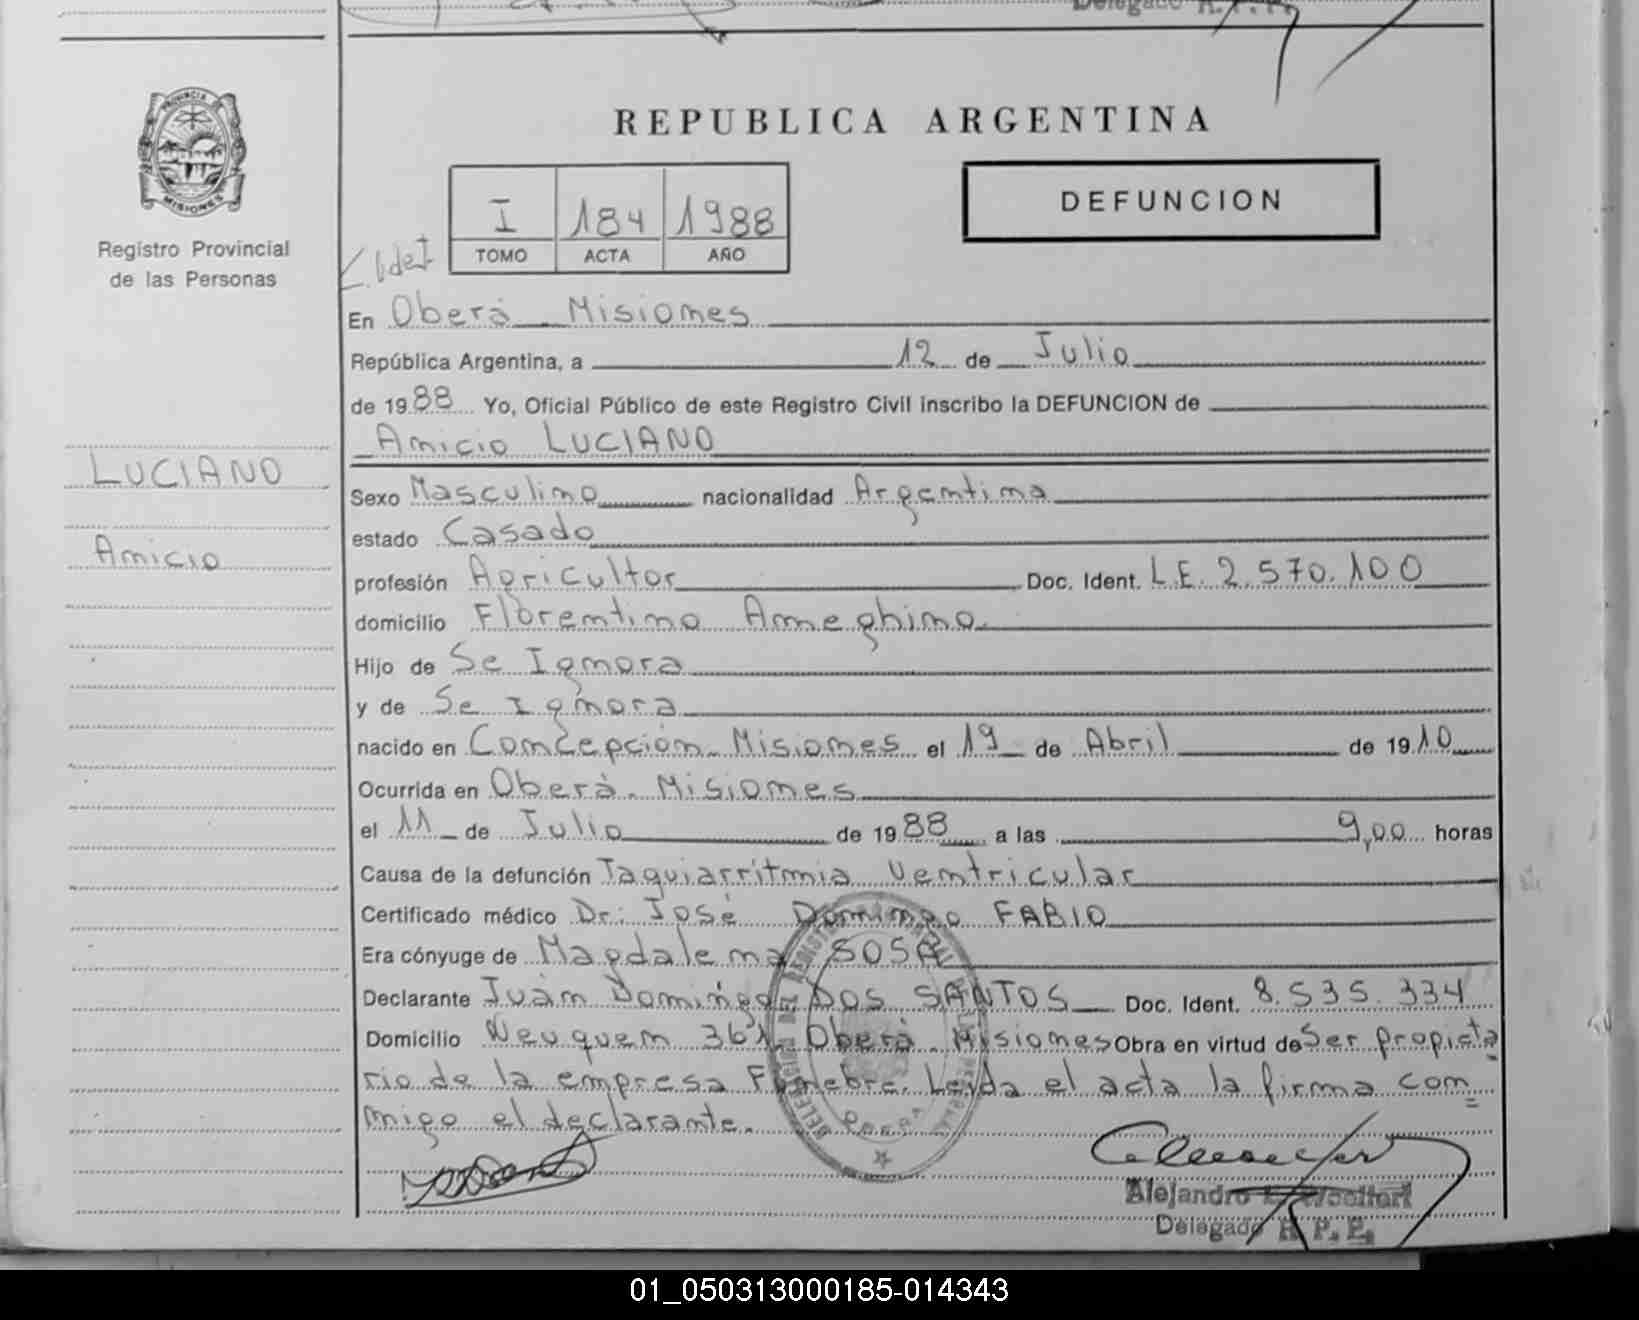 Delegado R. P. P.
PROVINCIA DE
MISIONES
Registro Provincial
de las Personas
LUCIANO
Amicio
REPUBLICA ARGENTINA
I 184 1988
TOMO ACTA AÑO
DEFUNCION
En Oberá Misiones
República Argentina, a 12 de Julio
de 1988 Yo, Oficial Público de este Registro Civil inscribo la DEFUNCION de
Amicio LUCIANO
Sexo Masculino nacionalidad Argentina
estado Casado
profesión Agricultor Doc. Ident. L.E. 2.570.100
domicilio Florentino Ameghino.
Hijo de Se Ignora
y de Se Ignora
nacido en Concepción. Misiones el 19 de Abril de 1910
Ocurrida en Oberá. Misiones
el 11 de Julio de 1988 a las 9,00 horas
Causa de la defunción Taquiarritmia Ventricular
Certificado médico Dr: José Domingo FABIO
Era cónyuge de Magdalena SOSA
Declarante Juan Domingo DOS SANTOS Doc. Ident. 8.535.334
Domicilio Neuquen 361 Oberá. Misiones Obra en virtud de Ser propieta
rio de la empresa Funebre. Leida el acta la firma con
migo el declarante.
Alejandro
Delegado R. P. P.
01_050313000185-014343